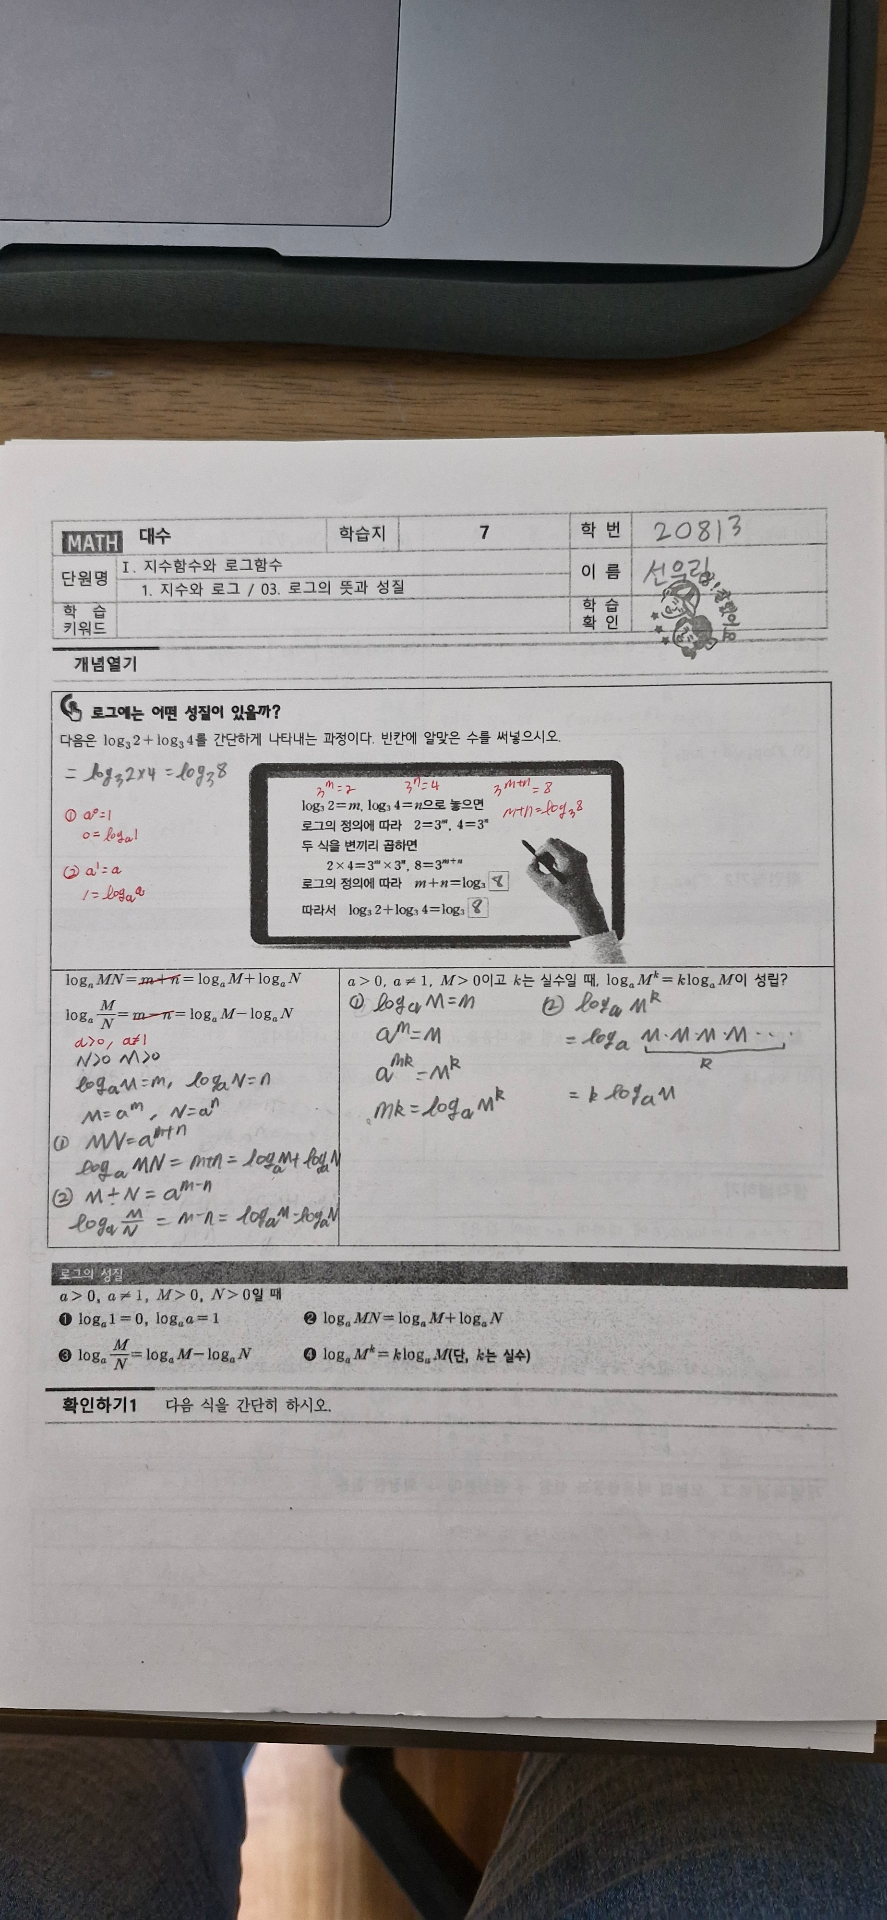 MATH 대수 학습지 7 학 번 20813
단원명 I. 지수함수와 로그함수 이 름 선우림
1. 지수와 로그 / 03. 로그의 뜻과 성질
학 습 키워드 학 습 확 인
잘했어요
개념열기
로그에는 어떤 성질이 있을까?
다음은 log₃2+log₃4를 간단하게 나타내는 과정이다. 빈칸에 알맞은 수를 써넣으시오.
= log₃2×4 = log₃8
① a⁰=1
0=logₐ1
② a¹=a
1=logₐa
3ᵐ=2 3ⁿ=4 3ᵐ⁺ⁿ=8
log₃2=m, log₃4=n으로 놓으면
m+n=log₃8
로그의 정의에 따라 2=3ᵐ, 4=3ⁿ
두 식을 변끼리 곱하면
2×4=3ᵐ×3ⁿ, 8=3ᵐ⁺ⁿ
로그의 정의에 따라 m+n=log₃ 8
따라서 log₃2+log₃4=log₃ 8
logₐMN=m+n=logₐM+logₐN
logₐ M/N=m-n=logₐM-logₐN
a>0, a≠1
N>0 M>0
logₐM=m, logₐN=n
M=aᵐ, N=aⁿ
① MN=aᵐ⁺ⁿ
logₐMN = m+n = logₐM+logₐN
② M÷N = aᵐ⁻ⁿ
logₐ M/N = m-n = logₐM-logₐN
a>0, a≠1, M>0이고 k는 실수일 때, logₐMᵏ=klogₐM이 성립?
① logₐM=m
aᵐ=M
aᵐᵏ=Mᵏ
mk=logₐMᵏ
② logₐMᵏ
= logₐ M·M·M·M·····
k
= k logₐM
로그의 성질
a>0, a≠1, M>0, N>0일 때
❶ logₐ1=0, logₐa=1 ❷ logₐMN=logₐM+logₐN
❸ logₐ M/N=logₐM-logₐN ❹ logₐMᵏ=klogₐM(단, k는 실수)
확인하기1 다음 식을 간단히 하시오.